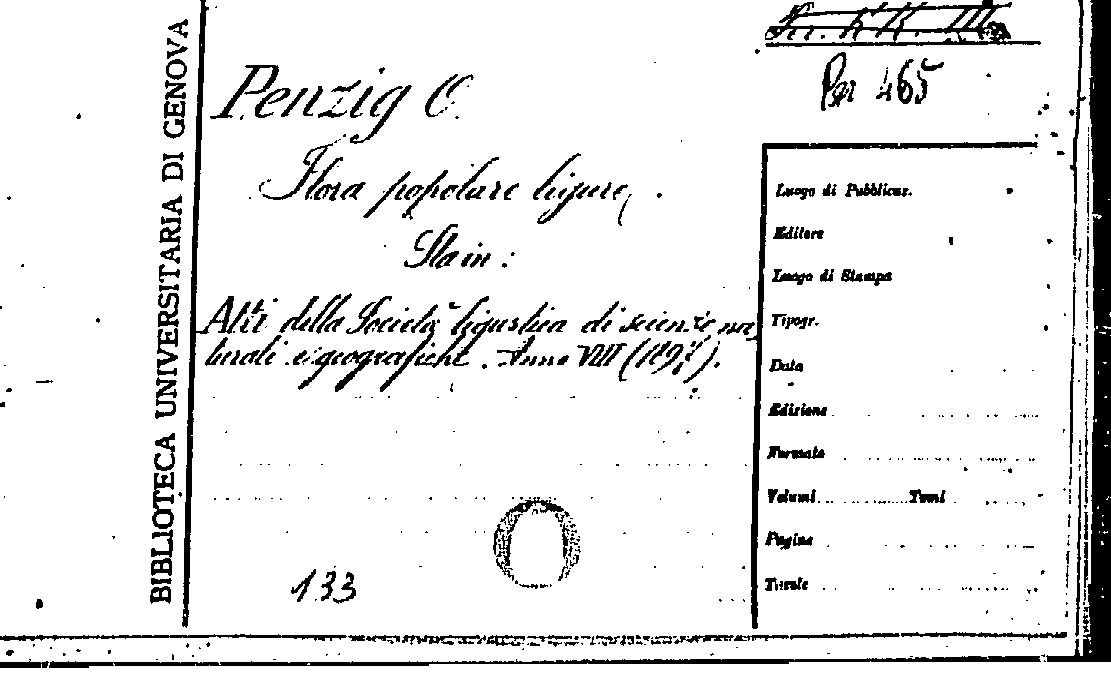 BIBLIOTECA UNIVERSITARIA DI GENOVA
Per 465
Penzig O.
Flora popolare ligure,
Sta in:
Atti della Società ligustica di scienze na
turali e geografiche. Anno VIII (1897).
133
Luogo di Pubblicaz.
Editore
Luogo di Stampa
Tipogr.
Data
Edizione
Formato
Volumi Tomi
Pagine
Tavole